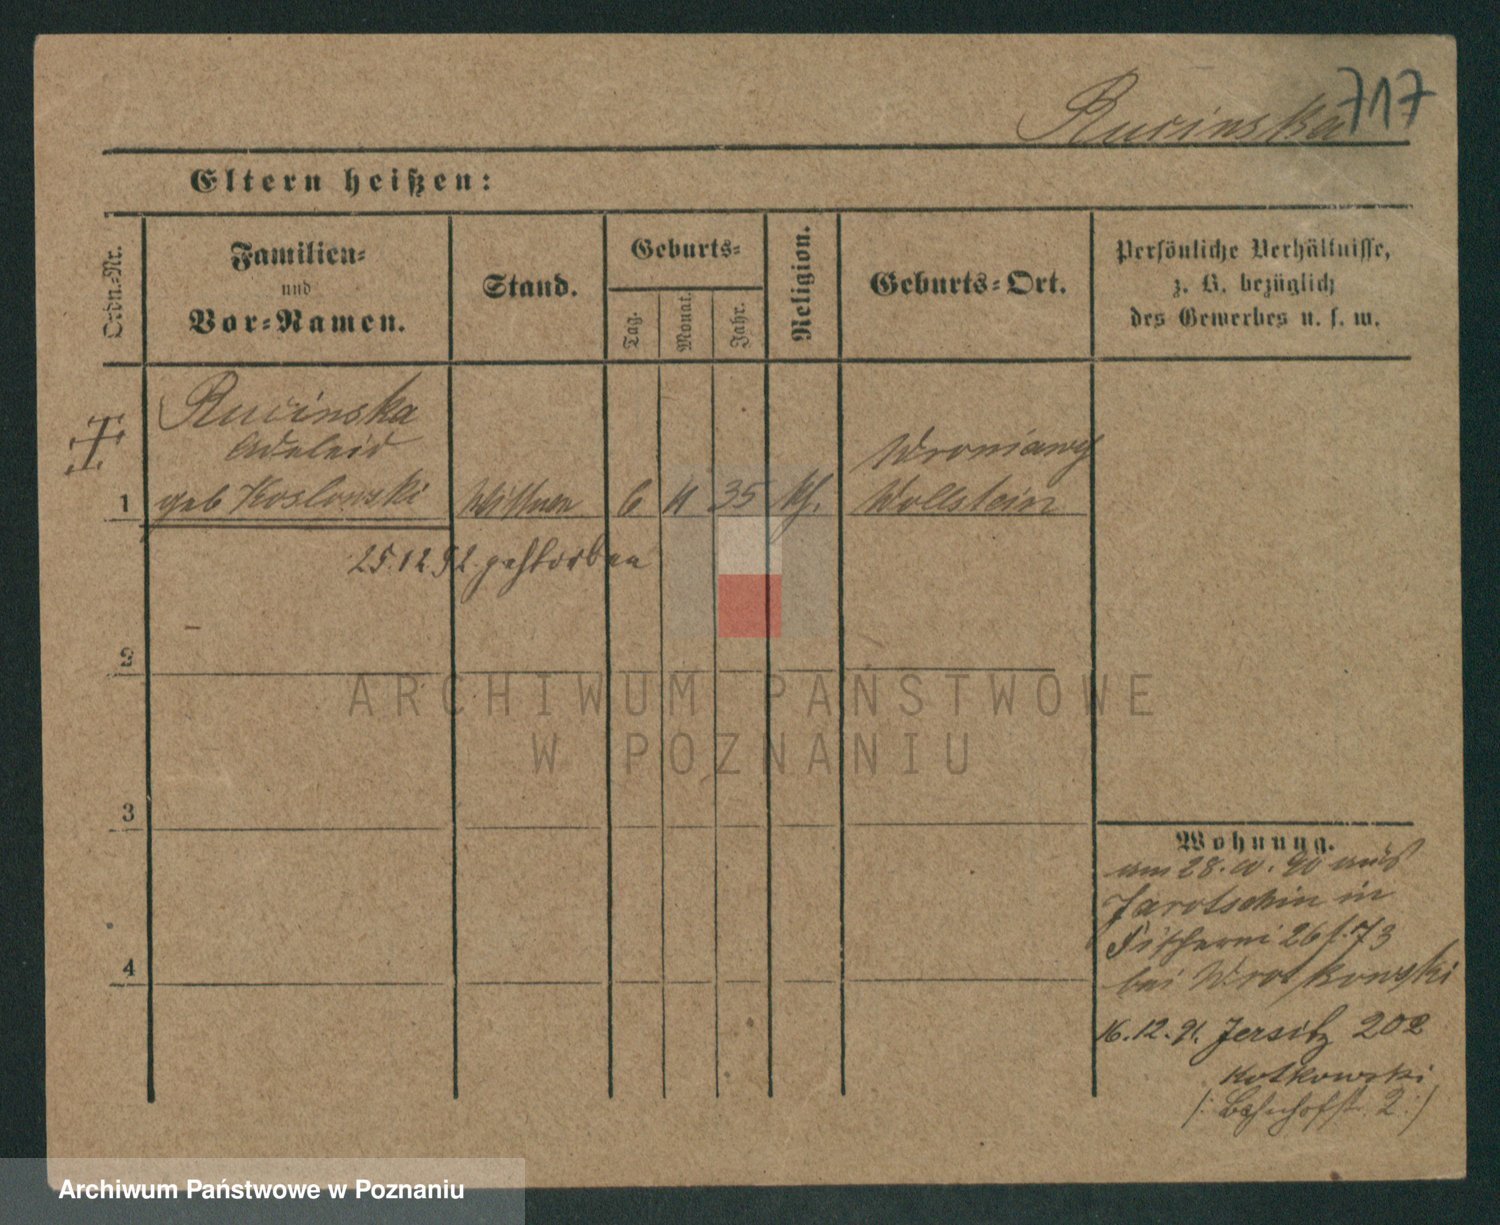 Rucinska
717
Eltern heißen:
Ordn.-Nr.
Familien-
und
Vor-Namen.
Stand.
Geburts-
Tag.
Monat.
Jahr.
Religion.
Geburts-Ort.
Persönliche Verhältnisse,
z. B. bezüglich
des Gewerbes u. s. w.
Rucinska
Adeleid
1 geb Koslowski Wittwe 6 4 35 kh. Wroniawy
Wollstein
25.12.92. gestorben
2
3
4
Wohnung.
am 28.10.90 aus
Jarotschin in
Fischerei 26 b. 73
bei
16.12.91. Jersitz 202
Kotkowski
(: Bahnhofst. 2 :)
ARCHIWUM PAŃSTWOWE
W POZNANIU
Archiwum Państwowe w Poznaniu